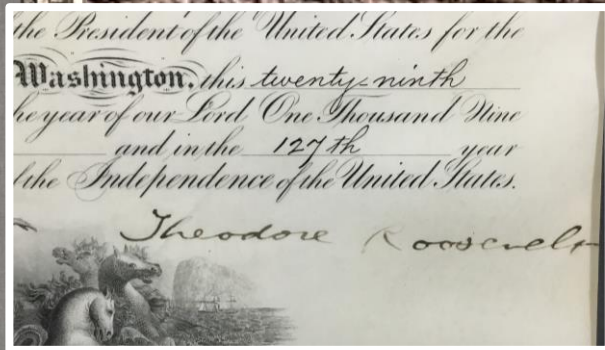 the President of the United States for the
Washington, this twenty-ninth
he year of our Lord One Thousand Nine
and in the 127th year
the Independence of the United States.
Theodore Roosevelt